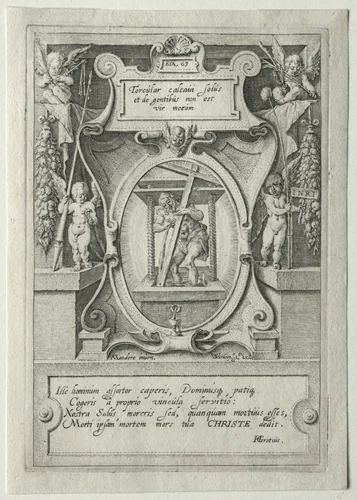 ESA, 63
Torcular calcavi solus
et de gentibus non est
vir mecum
INRI
Mandere inven.
Ille hominum assertor caperis, Dominusq, patiq,
Cogeris à proprio vincula servitio:
Nostra Salus moreris sed, quanquam mortuus esses,
Morti ipsam mortem mors tua CHRISTE dedit.